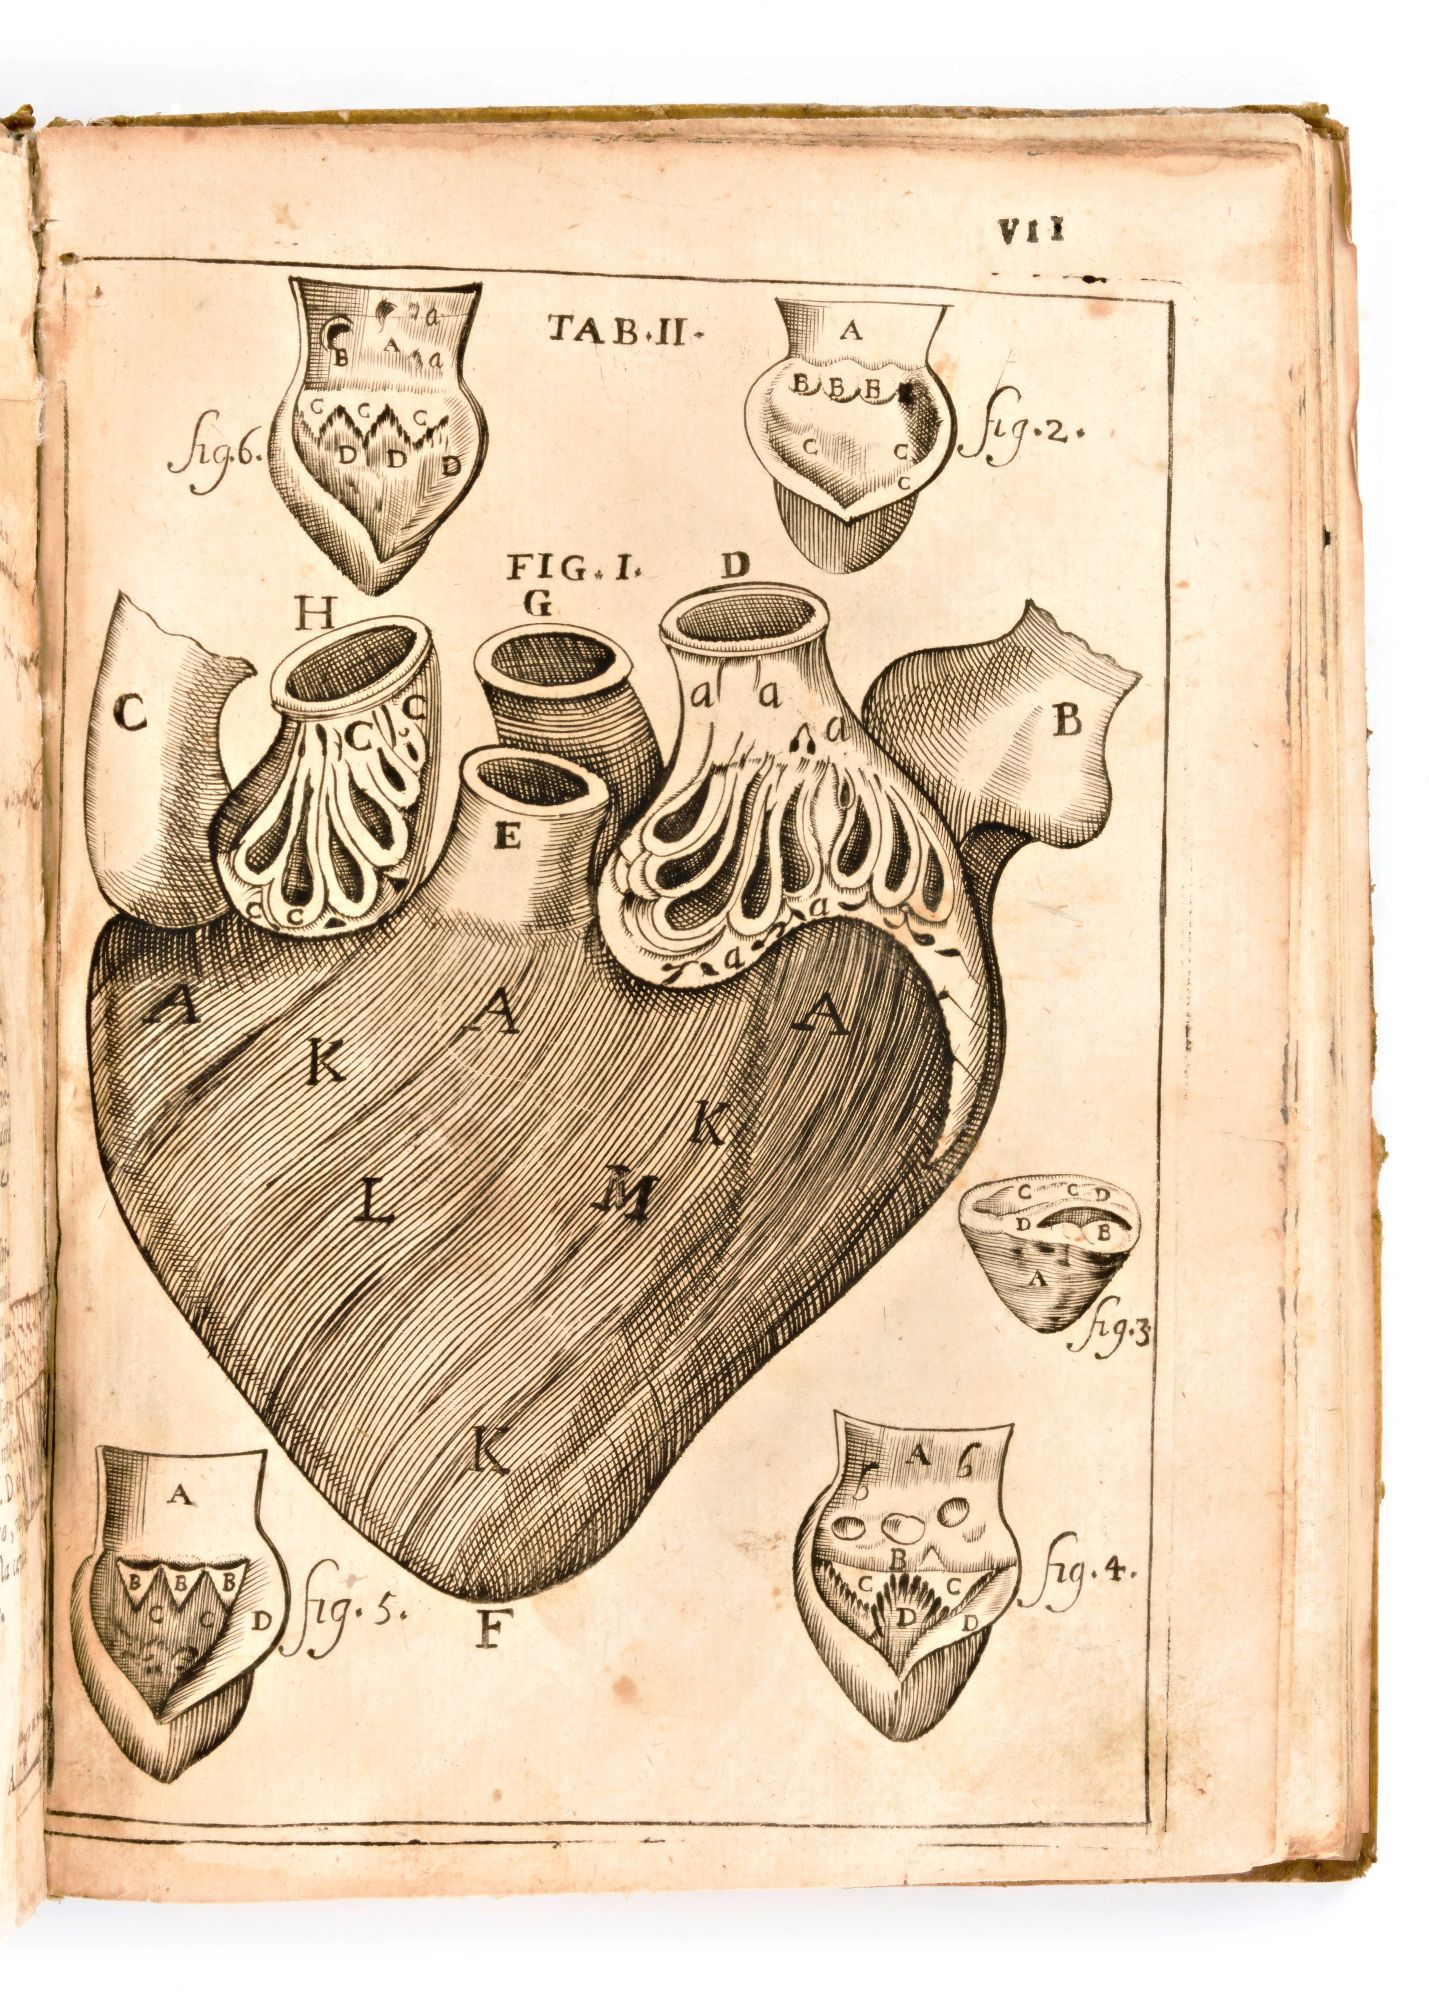 VII
TAB. II.
a
B
A
a
C C C
D D D
fig. 6.
A
B B B
C C
C
fig. 2.
FIG. I.
D
H
G
C
C
C
a a
a
B
E
C C
a
a
A
A
A
K
K
L
M
C C D
D
B
A
fig. 3.
K
A
B B B
C C
D
fig. 5.
F
A 6
6
B
C C
D
D
fig. 4.